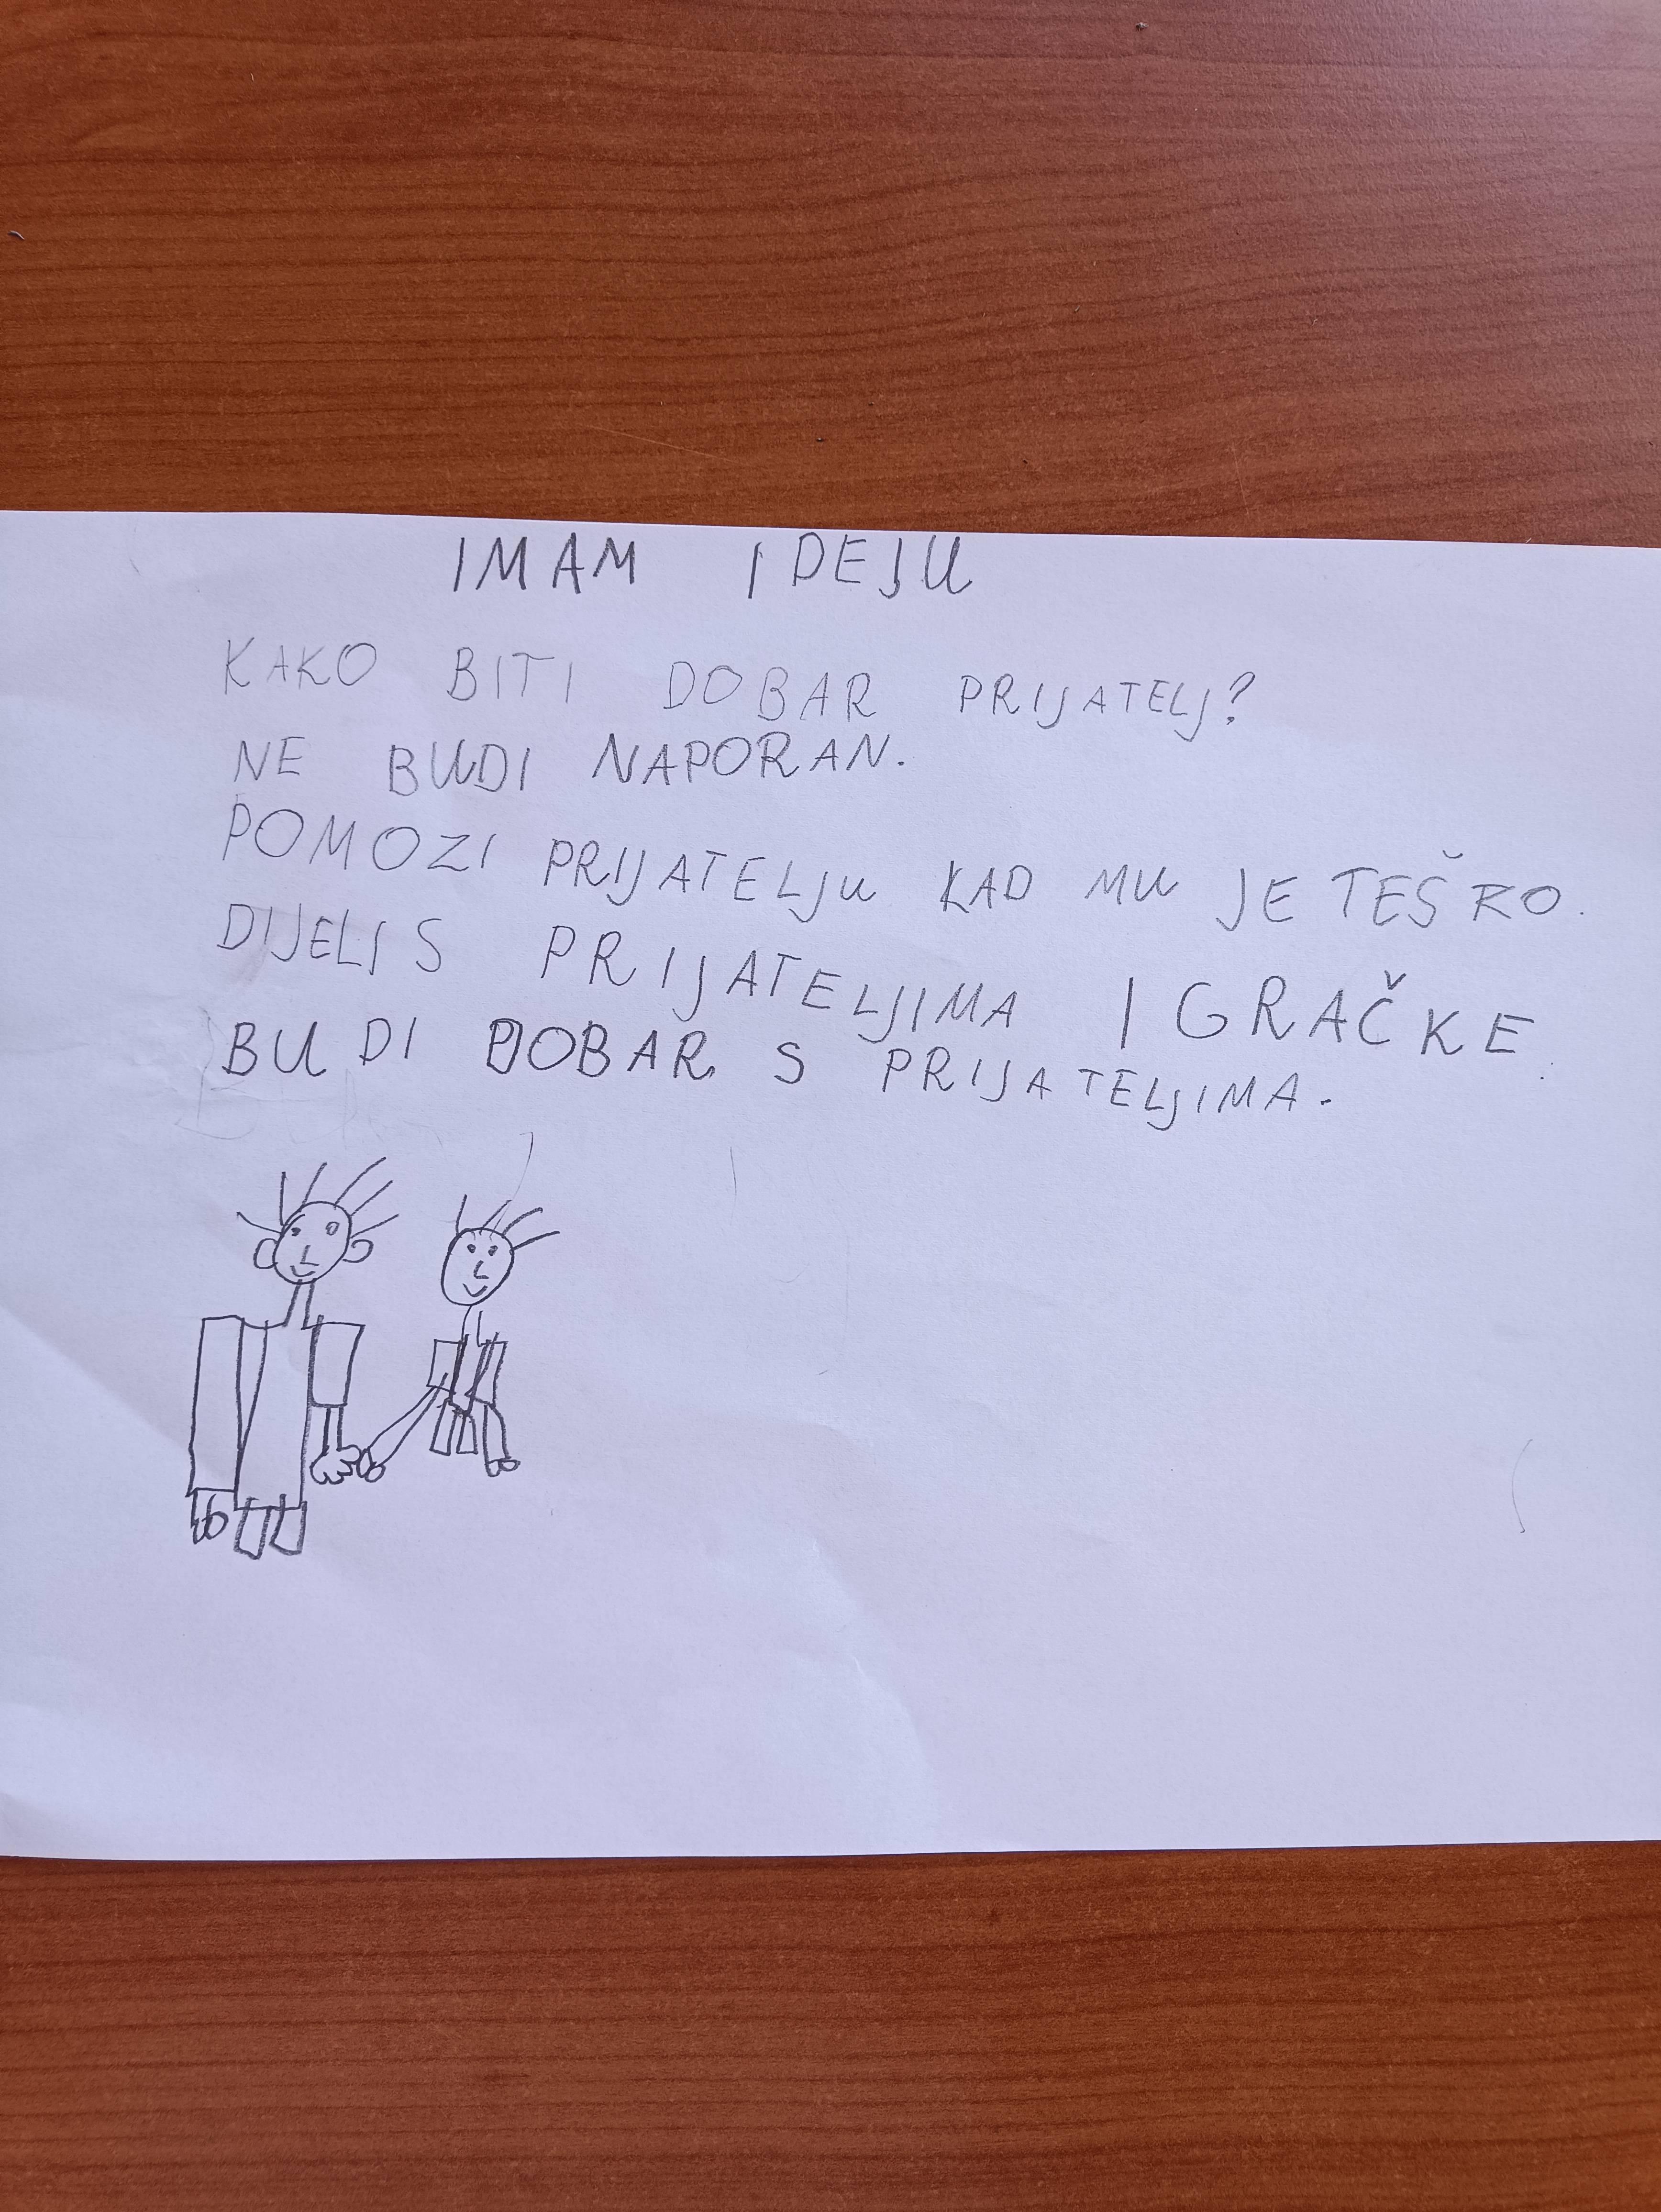 IMAM IDEJU
KAKO BITI DOBAR PRIJATELJ?
NE BUDI NAPORAN.
POMOZI PRIJATELJU KAD MU JE TEŠKO.
DIJELI S PRIJATELJIMA IGRAČKE.
BUDI DOBAR S PRIJATELJIMA.